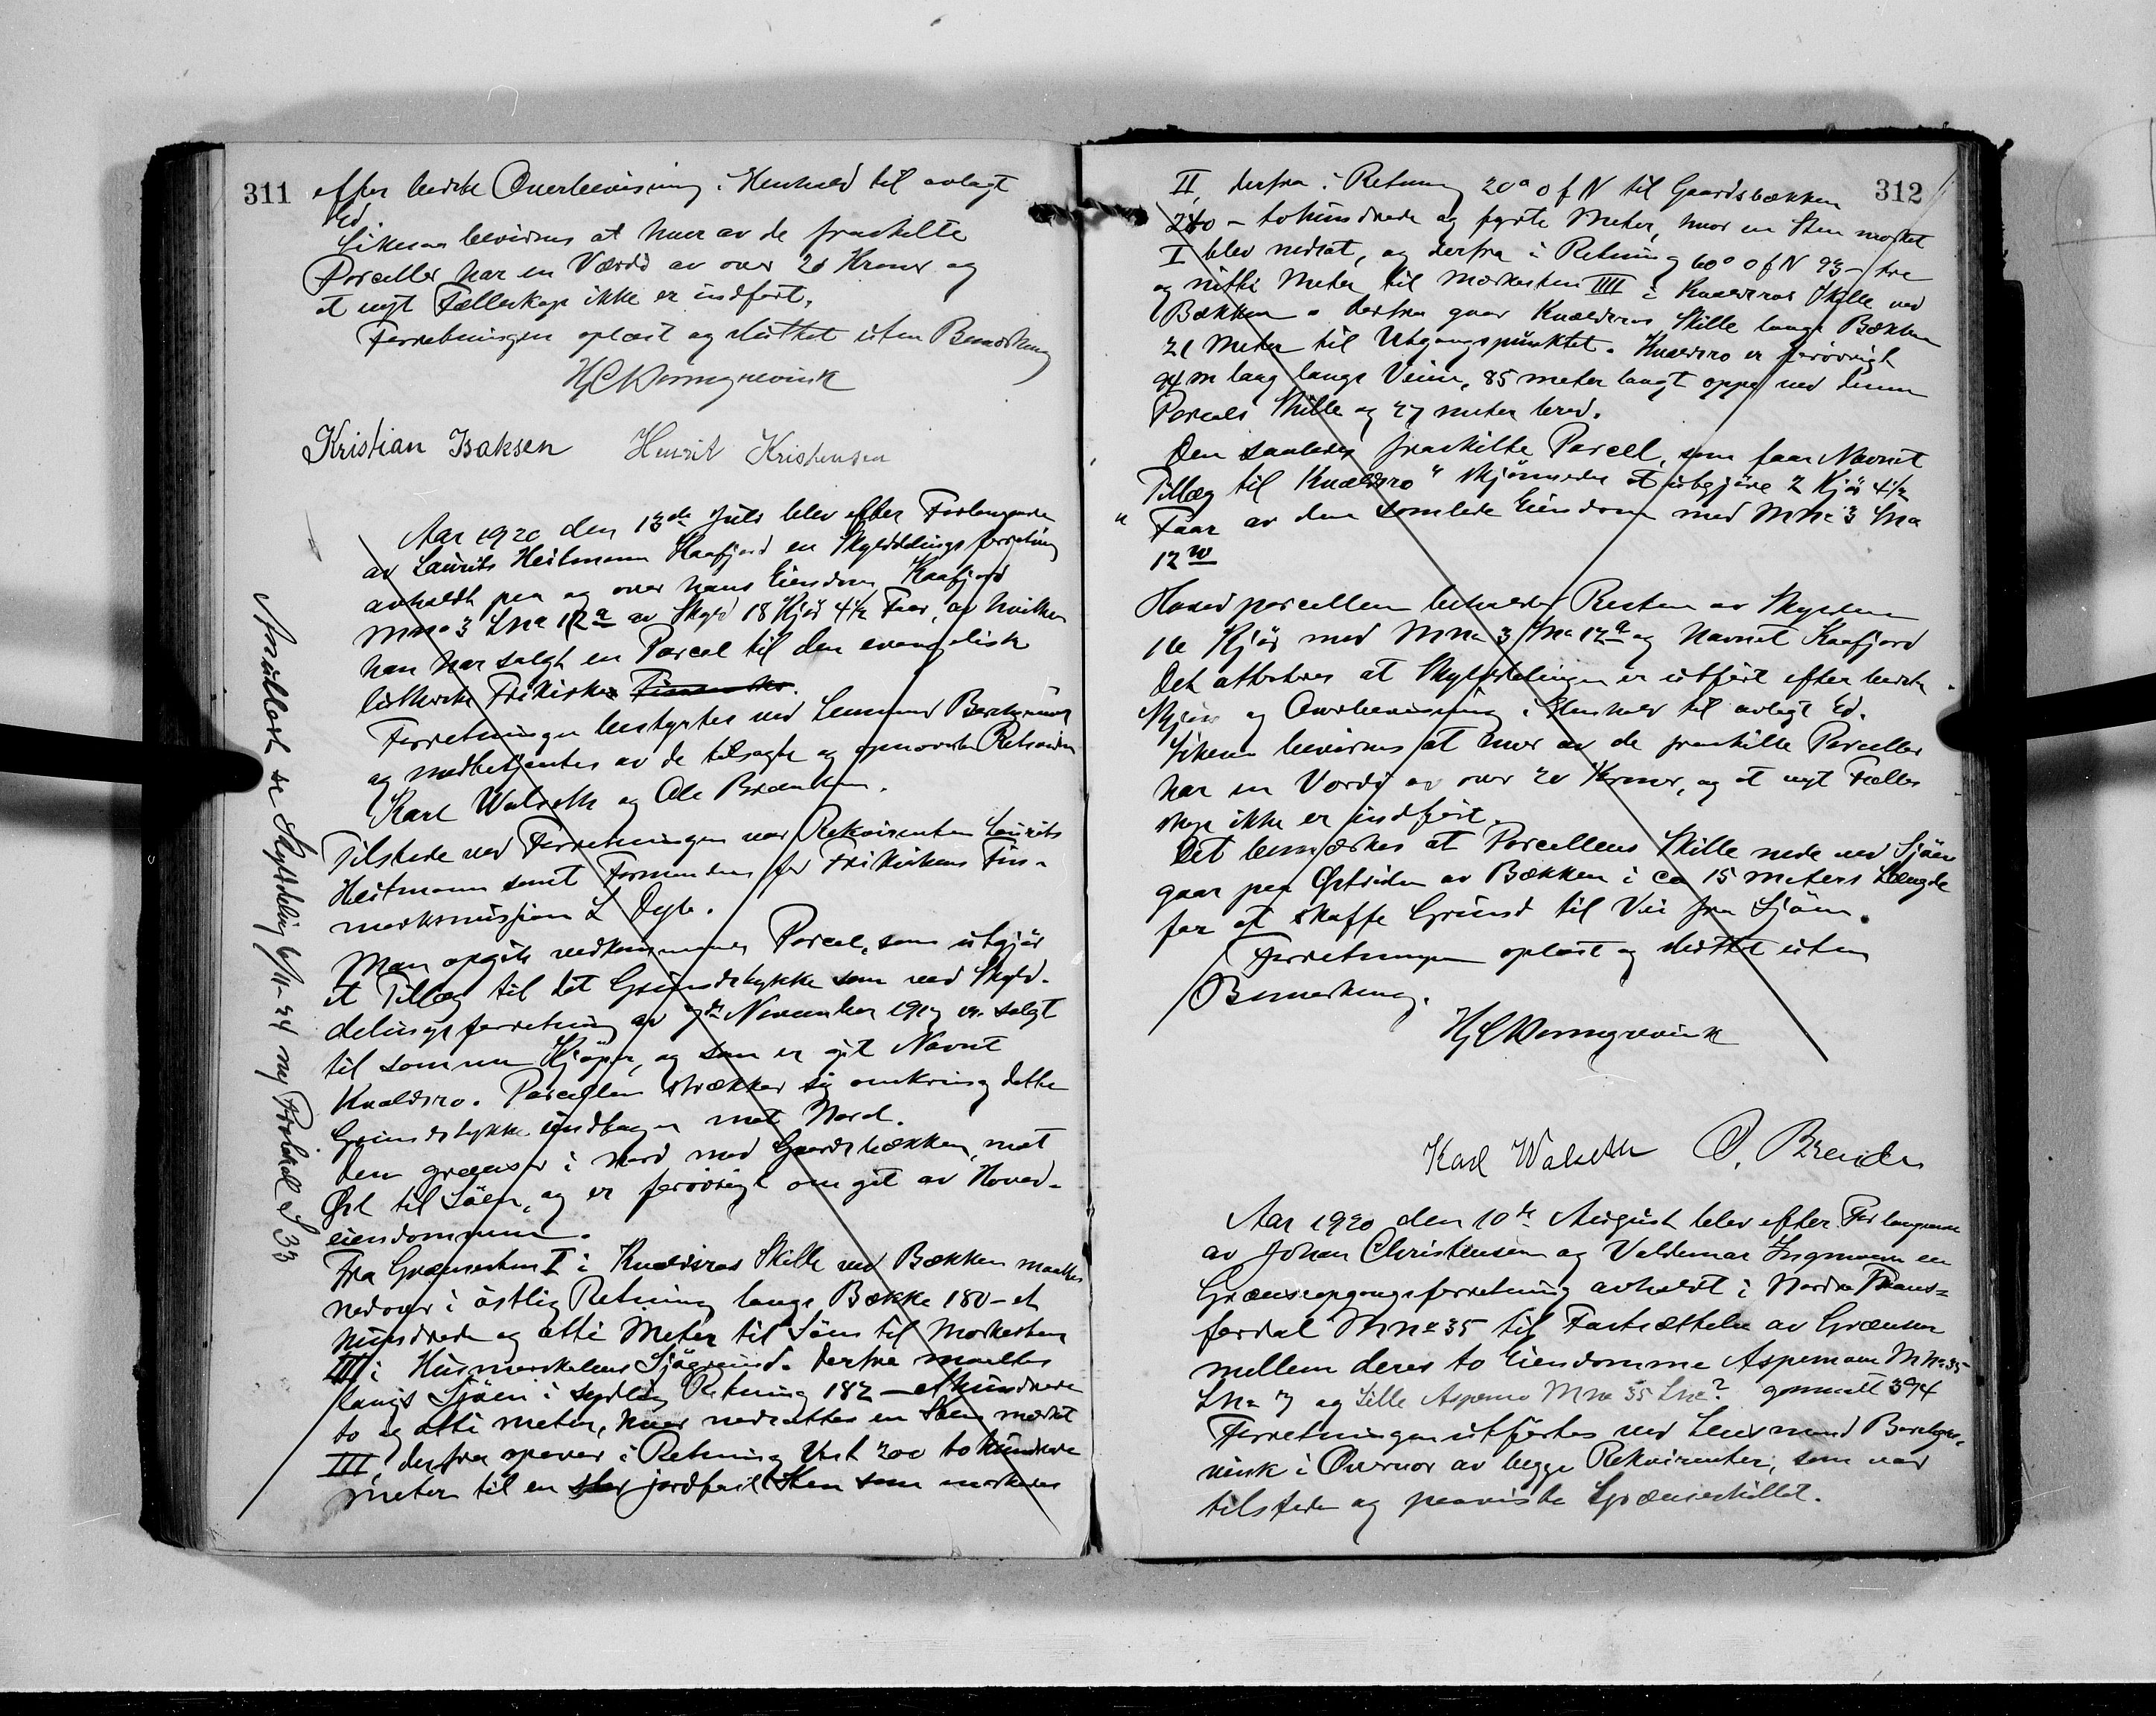 311
efter bedste Overbevisning i Henhold til avlagt
Ed
Likesaa bevidnes at hver av de fraskilte
Parceller har en Værdi av over 20 Kroner og
at nyt Fælleskap ikke er indført.
Forretningen oplæst og sluttet uten Bemerkning
Kristian Isaksen Henrik Kristensen
Aar 1920 den 13de Juli blev efter Forlangende
av Laurits Heitmann Kaafjord en Skylddelingsforretning
avholdt paa og over hans Eiendom Kaafjord
M no 3 L No 12a av Skyld 18 Kjør 4½ Faar, av hvilken
han har solgt en Parcel til den evangelisk
lutherske Frikirke
Forretningen bestyrtes ved Lensmand
og medbetjentes av de tilsagte og opnævnte Retsvidner
Karl Walseth og Ole
Tilstede ved Forretningen var Rekvirenten Laurits
Heitmann samt Formanden for Frikirkens Fin-
marksmission L
Man opgik vedkommende Parcel, som utgjør
et Tillæg til det Grundstykke som ved Skyld-
delingsforretning av 7de November 1917 er solgt
til samme Kjøper, og som er git Navnet
Kvældsro. Parcellen strækker sig omkring dette
Grundstykke undtagen mot Nord.
Den grænser i Nord mod Gaardsbækken, mot
Øst til Søen, og er forøvrigt omgit av Hoved-
eiendommen.
Fra Grænsesten I i Kvældsros Skille ved Bækken maaltes
nedover i østlig Retning langs Bække 180 - et
hundrede og otti Meter til Søen til Merkesten
III i Husmerkelens Sjøgrund. Derfra maaltes
langs Sjøen i sydlig Retning 182 - et hundrede
to og otti meter, hvor nedsattes en Sten merket
III, derfra opover i Retning Vest 200 to hundrede
meter til en stor jordfast Sten som merkedes
Anullert se Skylddeling 6/11-24 ny Protokoll S 33
312
II, derfra i Retning 20° O f N til Gaardsbækken
240 - tohundrede og fyrte Meter, hvor en Sten merket
I blev nedsat, og derfra i Retning 60° O f N 93 - tre
og nitti Meter til merkesten IIII i Kvældsros Skille ved
Bækken. Derfra gaar Kvældsros Skille langs Bækken
21 Meter til Utgangspunktet. Kvældsro er forøvrigt
94 m lang langs Veien, 85 meter langt oppe ved denne
Parcels Skille og 27 meter bred.
Den saaledes fraskilte Parcel, som faar Navnet
"Tillæg til Kvældsro" skjønnedes at utgjøre 2 Kjør 4½
Faar av den samlede Eiendom med M No 3 L No
12
Hovedparcellen beholder Resten av Skylden
16 Kjør med M No 3 L No 12a og Navnet Kaafjord
Det attesteres at Skylddelingen er utført efter bedste
Skjøn og Overbevisning i Henhold til avlagt Ed.
Likesaa bevidnes at hver av de fraskilte Parceller
har en Værdi av over 20 Kroner, og at nyt Fælles
skap ikke er indført.
Det bemærkes at Parcellens Skille nede ved Sjøen
gaar paa Østsiden av Bækken i ca 15 meters Længde
for at skaffe Grund til Vei fra Sjøen.
Forretningen oplæst og sluttet uten
Bemerkning.
Karl Walseth O.
Aar 1920 den 10de August blev efter Forlangende
av Johan Christensen og Valdemar Ingmann en
Grænseopgangsforretning avholdt i Nordre
ferdal M No 35 til Fastsættelse av Grænsen
mellem deres to Eiendomme Aspemoen M No 35
L No 7 og Lille Aspemo M No 35 L No ? gammelt 394
Forretningen utførtes ved Lensmand
vink i Overvær av begge Rekvirenter, som var
tilstede og paaviste Grænseskillet.